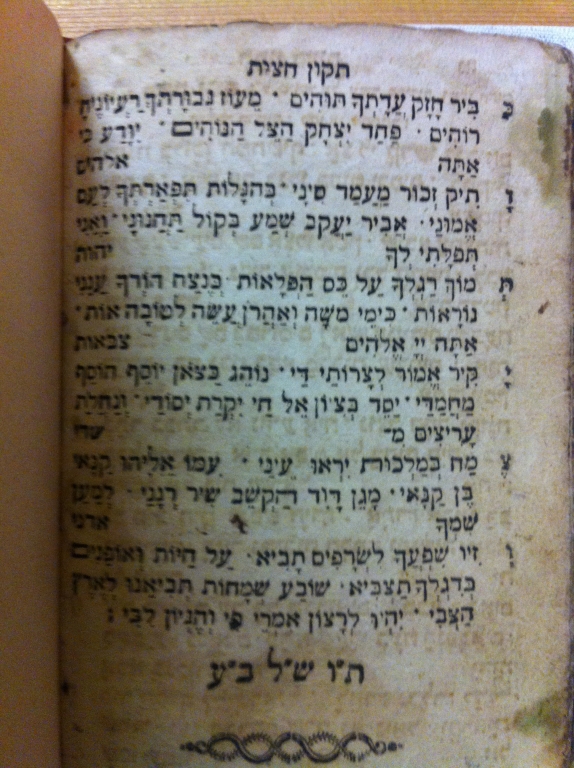 תקון חצות
כַּ בִּיר חָזָק עֲדָתְךָ תּוּהִים · מָעוֹז גְּבוּרָתְךָ רַעְיוֹנֶיהָ
רוֹהִים · פַּחַד יִצְחָק הַצֵּל הַנּוֹהִים · יִוָּדַע כִּי
אַתָּה אלהים
וָ תִיק זְכוֹר מַעֲמַד סִינַי · בְּהִגָּלוֹת תִּפְאַרְתְּךָ לְעַם
אֱמוּנַי · אֲבִיר יַעֲקֹב שְׁמַע בְּקוֹל תַּחֲנוּנַי · וַאֲנִי
תְפִלָּתִי לְךָ יהוה
תְּ מוֹךְ רַגְלְךָ עַל כֵּס הַפְּלָאוֹת · בְּנֶצַח הוֹדְךָ עֲנֵנִי
נוֹרָאוֹת · כִּימֵי משֶׁה וְאַהֲרֹן עֲשֵׂה לְטוֹבָה אוֹת ·
אַתָּה יְיָ אֱלֹהִים צבאות
יָ קִּיר אֱמוֹר לְצָרוֹתַי דַּי · נוֹהֵג כַּצֹּאן יוֹסֵף הוֹסֵף
מַחֲמַדַּי · יַסֵּד בְּצִיּוֹן אֵל חַי יִקְרַת יְסוֹדַי · וְנַחֲלַת
עָרִיצִים מ־ שדי
צֶ מַח בְּמַלְכוּת יִרְאוּ עֵינַי · עִמּוֹ אֵלִיָּהוּ קַנָּאִי
בֶּן קַנָּאִי · מָגֵן דָּוִד הַקְשֵׁב שִׁיר רְנָנַי · לְמַעַן
שִׁמְךָ אדני
וְ זִיו שִׁפְעֲךָ לִשְׂרָפִים תָּבִיא · עַל חַיּוֹת וְאוֹפַנִּים
בְּדִגְלְךָ תַּצְבִּיא · שׂוֹבַע שְׂמָחוֹת תְּבִיאֵנוּ לְאֶרֶץ
הַצְּבִי · יִהְיוּ לְרָצוֹן אִמְרֵי פִי וְהֶגְיוֹן לִבִּי :
ת"ו ש"ל ב"ע